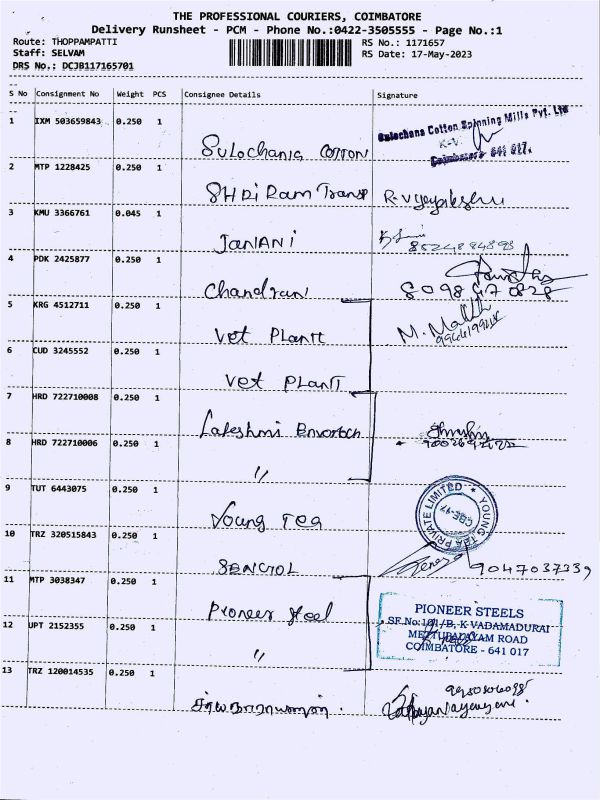 THE PROFESSIONAL COURIERS, COIMBATORE
Delivery Runsheet - PCM - Phone No.:0422-3505555 - Page No.:1
Route: THOPPAMPATTI RS No.: 1171657
Staff: SELVAM RS Date: 17-May-2023
DRS No.: DCJB117165701
S No Consignment No Weight PCS Consignee Details Signature
1 IXM 503659843 0.250 1
Sulochana Cotton Spinning Mills Pvt. Ltd
K-V.
Coimbatore 641 017.
Sulochana COTTON
2 MTP 1228425 0.250 1
SHRi Ram Transp
3 KMU 3366761 0.045 1
JANANi
8524884898
4 PDK 2425877 0.250 1
Chandran
8098570828
5 KRG 4512711 0.250 1
Vet PLANTT
M.
6 CUD 3245552 0.250 1
Vet PLANT
7 HRD 722710008 0.250 1
Lakshmi
8 HRD 722710006 0.250 1
"
9 TUT 6443075 0.250 1
YOUNG TEA PRIVATE LIMITED
CBE-17
Young Tea
10 TRZ 320515843 0.250 1
SENCTOL
9047037339
11 MTP 3038347 0.250 1
Pioneer Steel
PIONEER STEELS
SF.No:181/B, K VADAMADURAI
METTUPALAYAM ROAD
COIMBATORE - 641 017
12 UPT 2152355 0.250 1
"
13 TRZ 120014535 0.250 1
சத்யநாராயணன்.